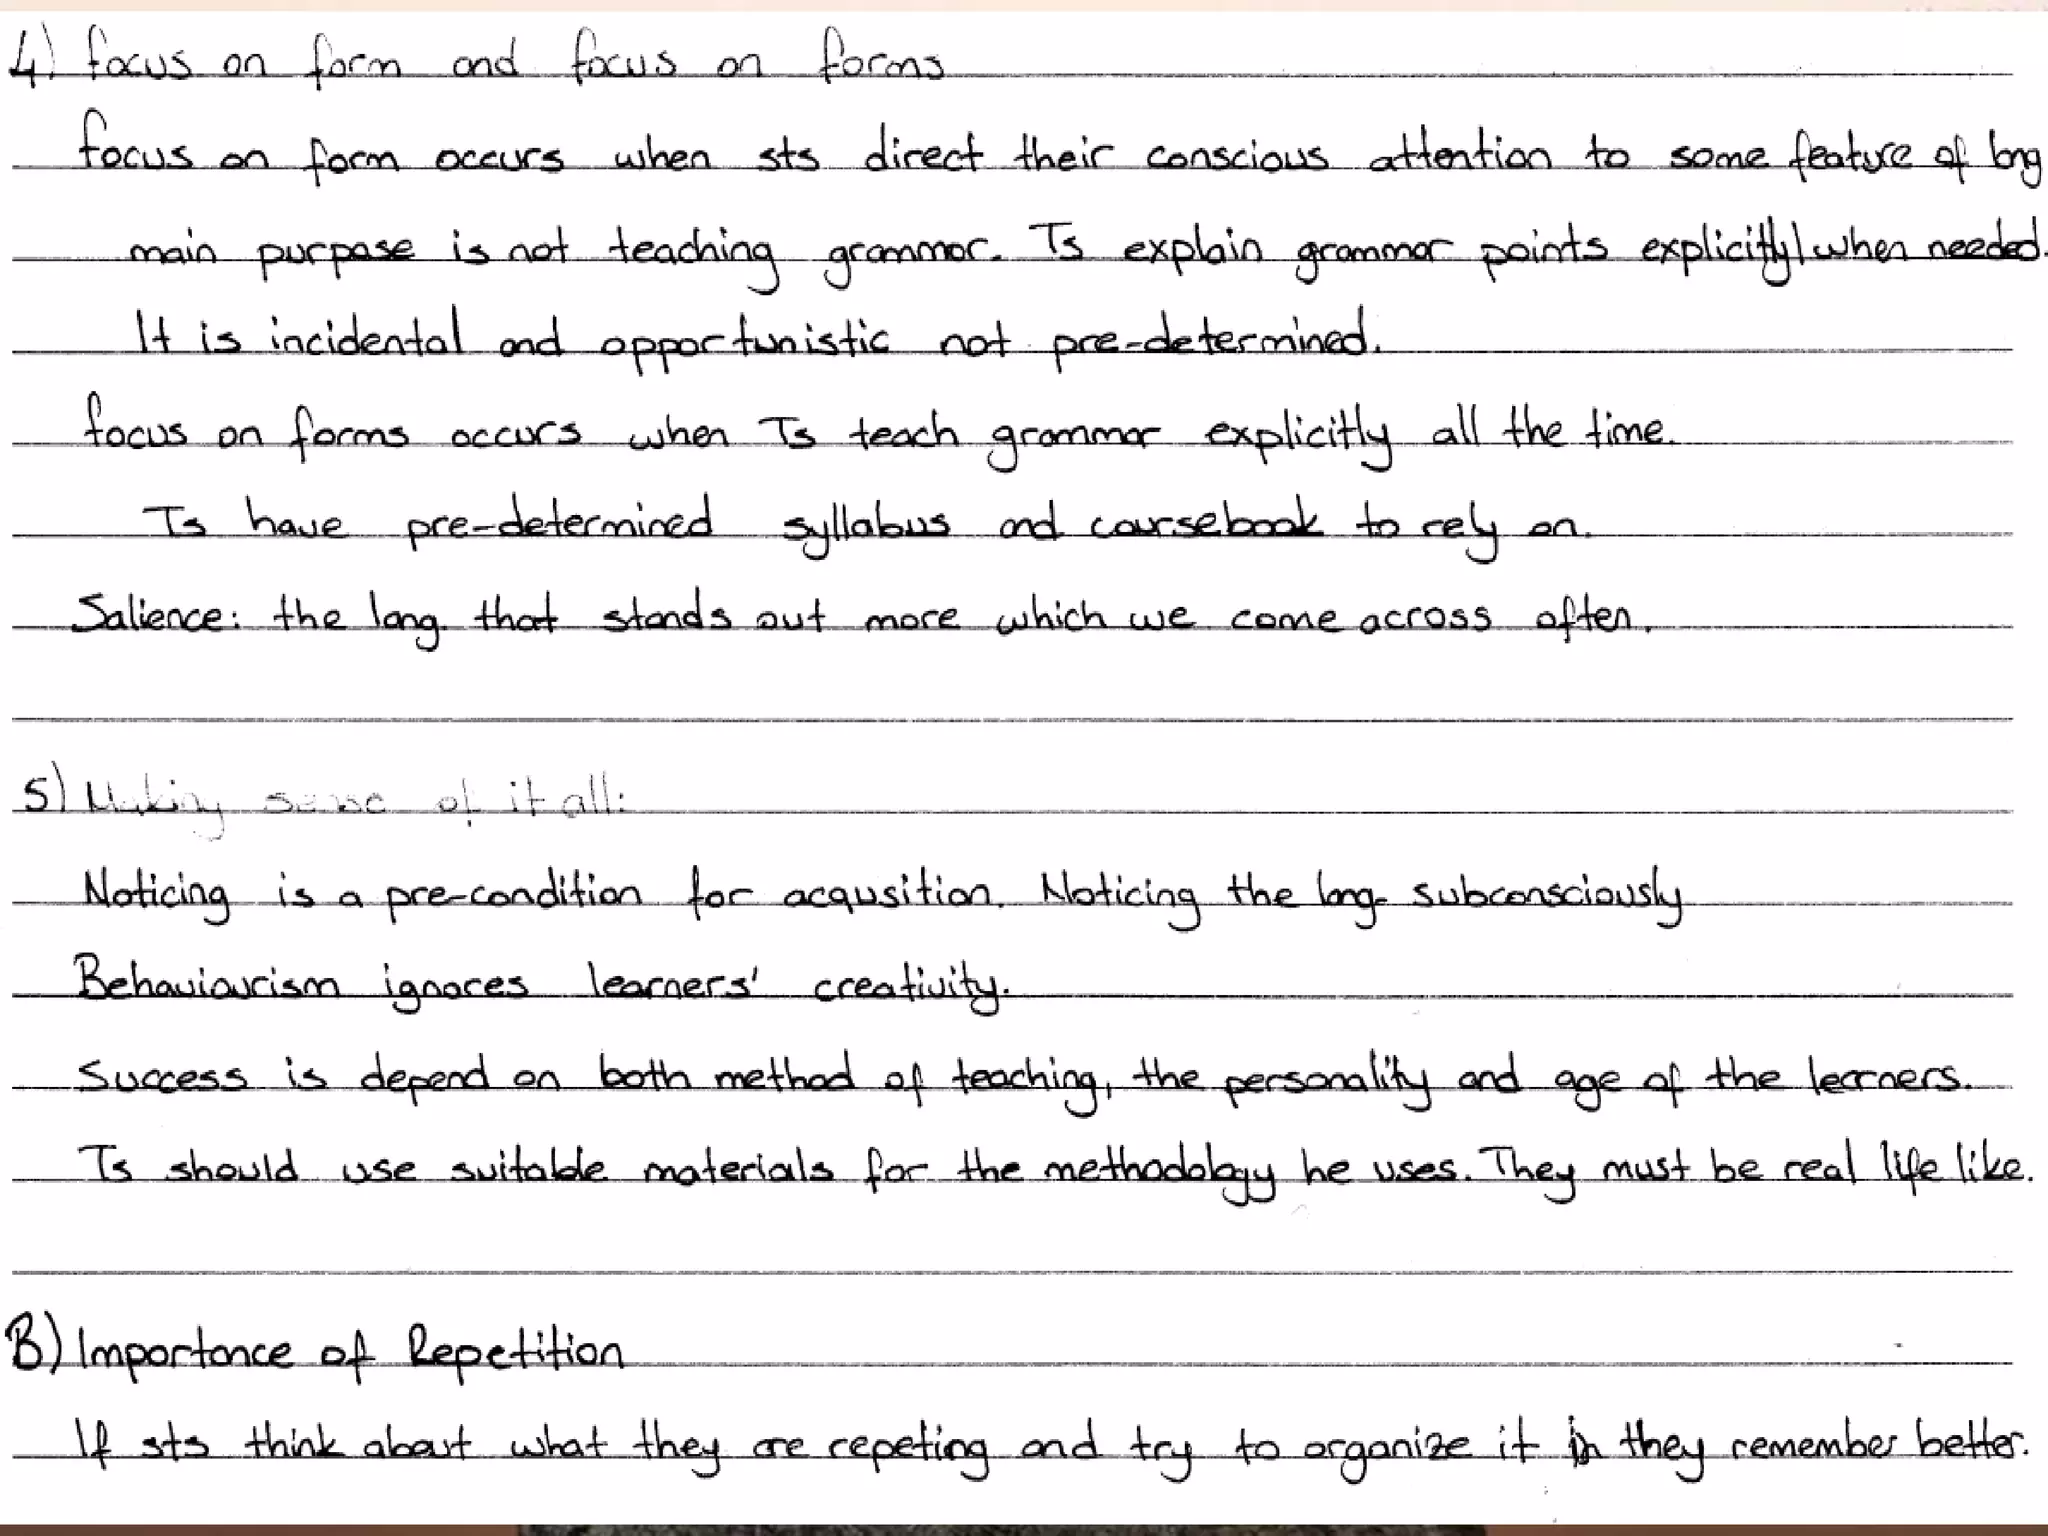 4) focus on form and focus on forms
focus on form occurs when sts direct their conscious attention to some feature of lang
main purpose is not teaching grammar. Ts explain grammar points explicitly when needed.
It is incidental and opportunistic not pre-determined.
focus on forms occurs when Ts teach grammar explicitly all the time.
Ts have pre-determined syllabus and coursebook to rely on.
Salience: the lang. that stands out more which we come across often.
5) Making sense of it all:
Noticing is a pre-condition for acqusition. Noticing the lang. subconsciously
Behaviourism ignores learners' creativity.
Success is depend on both method of teaching, the personality and age of the learners.
Ts should use suitable materials for the methodology he uses. They must be real life like.
B) Importance of Repetition
If sts think about what they are repeting and try to organize it in they remember better.